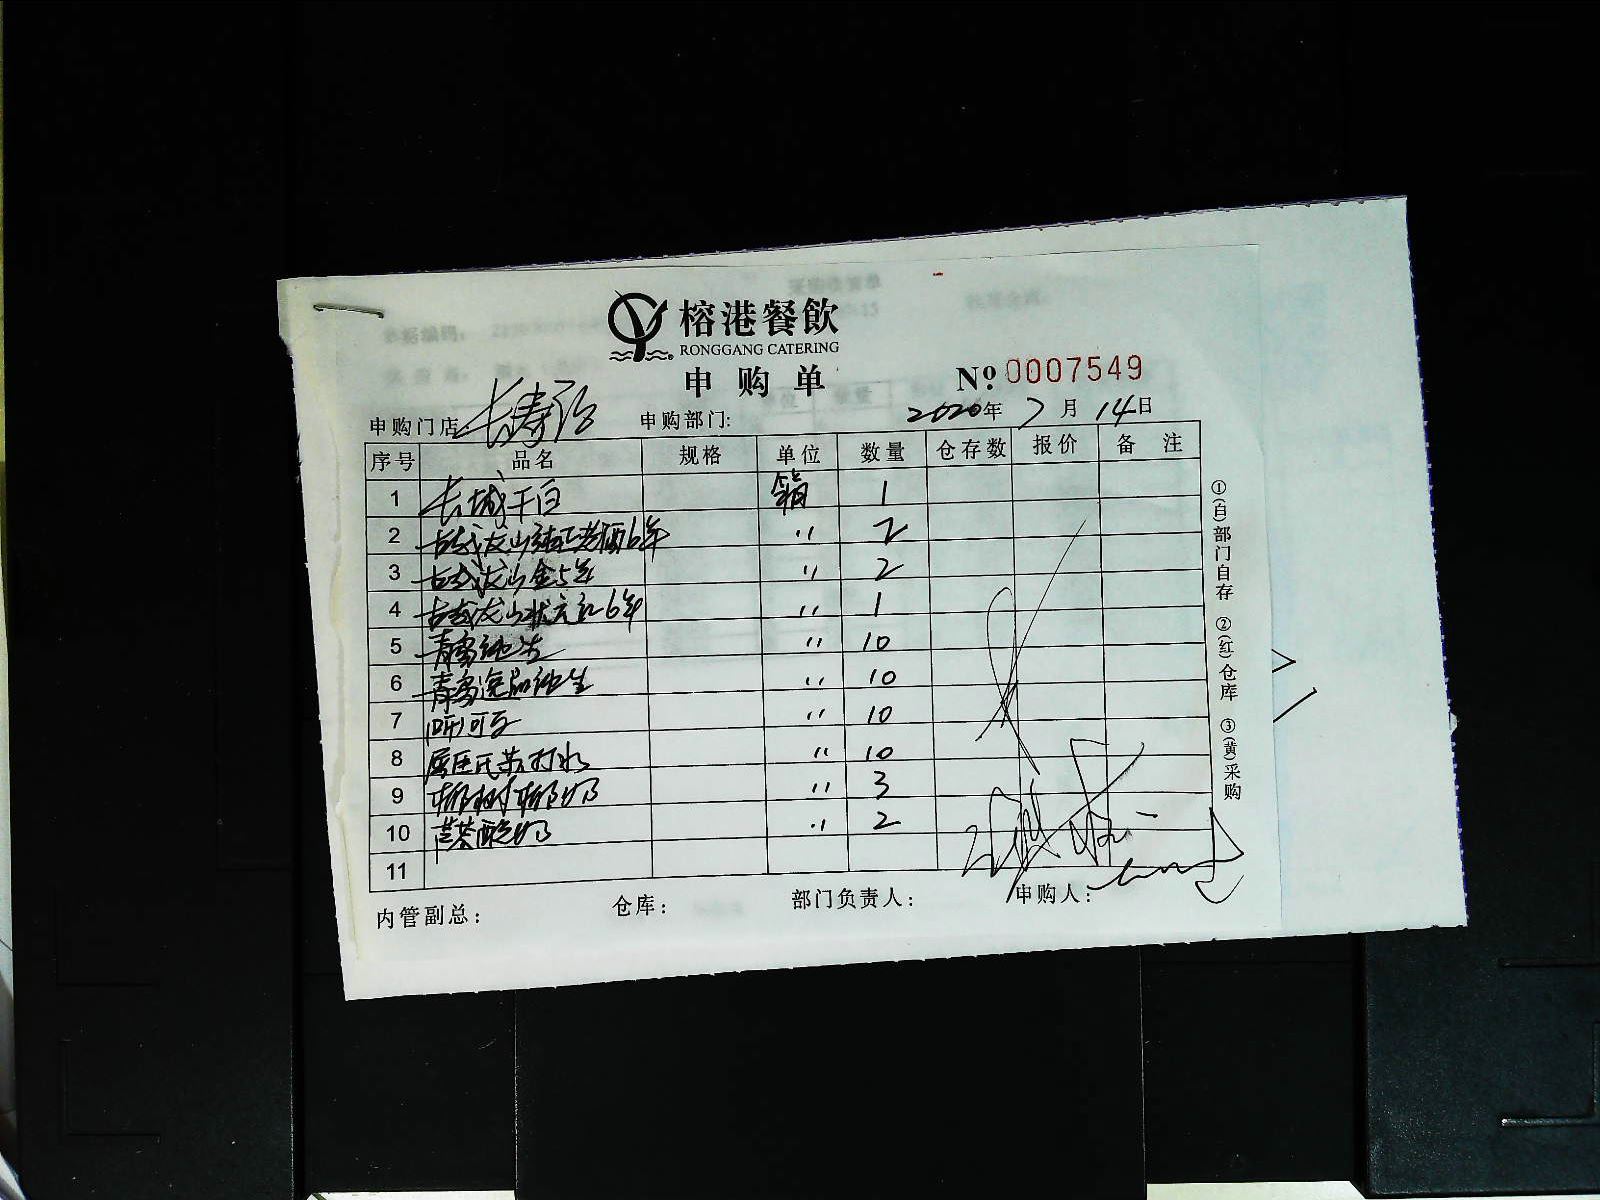 榕港餐飲
RONGGANG CATERING
申购单
Nº 0007549
申购门店 长寿路 申购部门: 2020年 7月 14日
序号 品名 规格 单位 数量 仓存数 报价 备注
1 长城干白 箱 1
2 古越龙山纯正老酒6年 〃 2
3 古越龙山金5年 〃 2
4 古越龙山状元红6年 〃 1
5 青岛纯生 〃 10
6 青岛逸品纯生 〃 10
7 (听)可乐 〃 10
8 屈臣氏苏打水 〃 10
9 椰树椰奶 〃 3
10 酸奶 〃 2
11
内管副总: 仓库: 部门负责人: 申购人:
①(白)部门自存 ②(红)仓库 ③(黄)采购